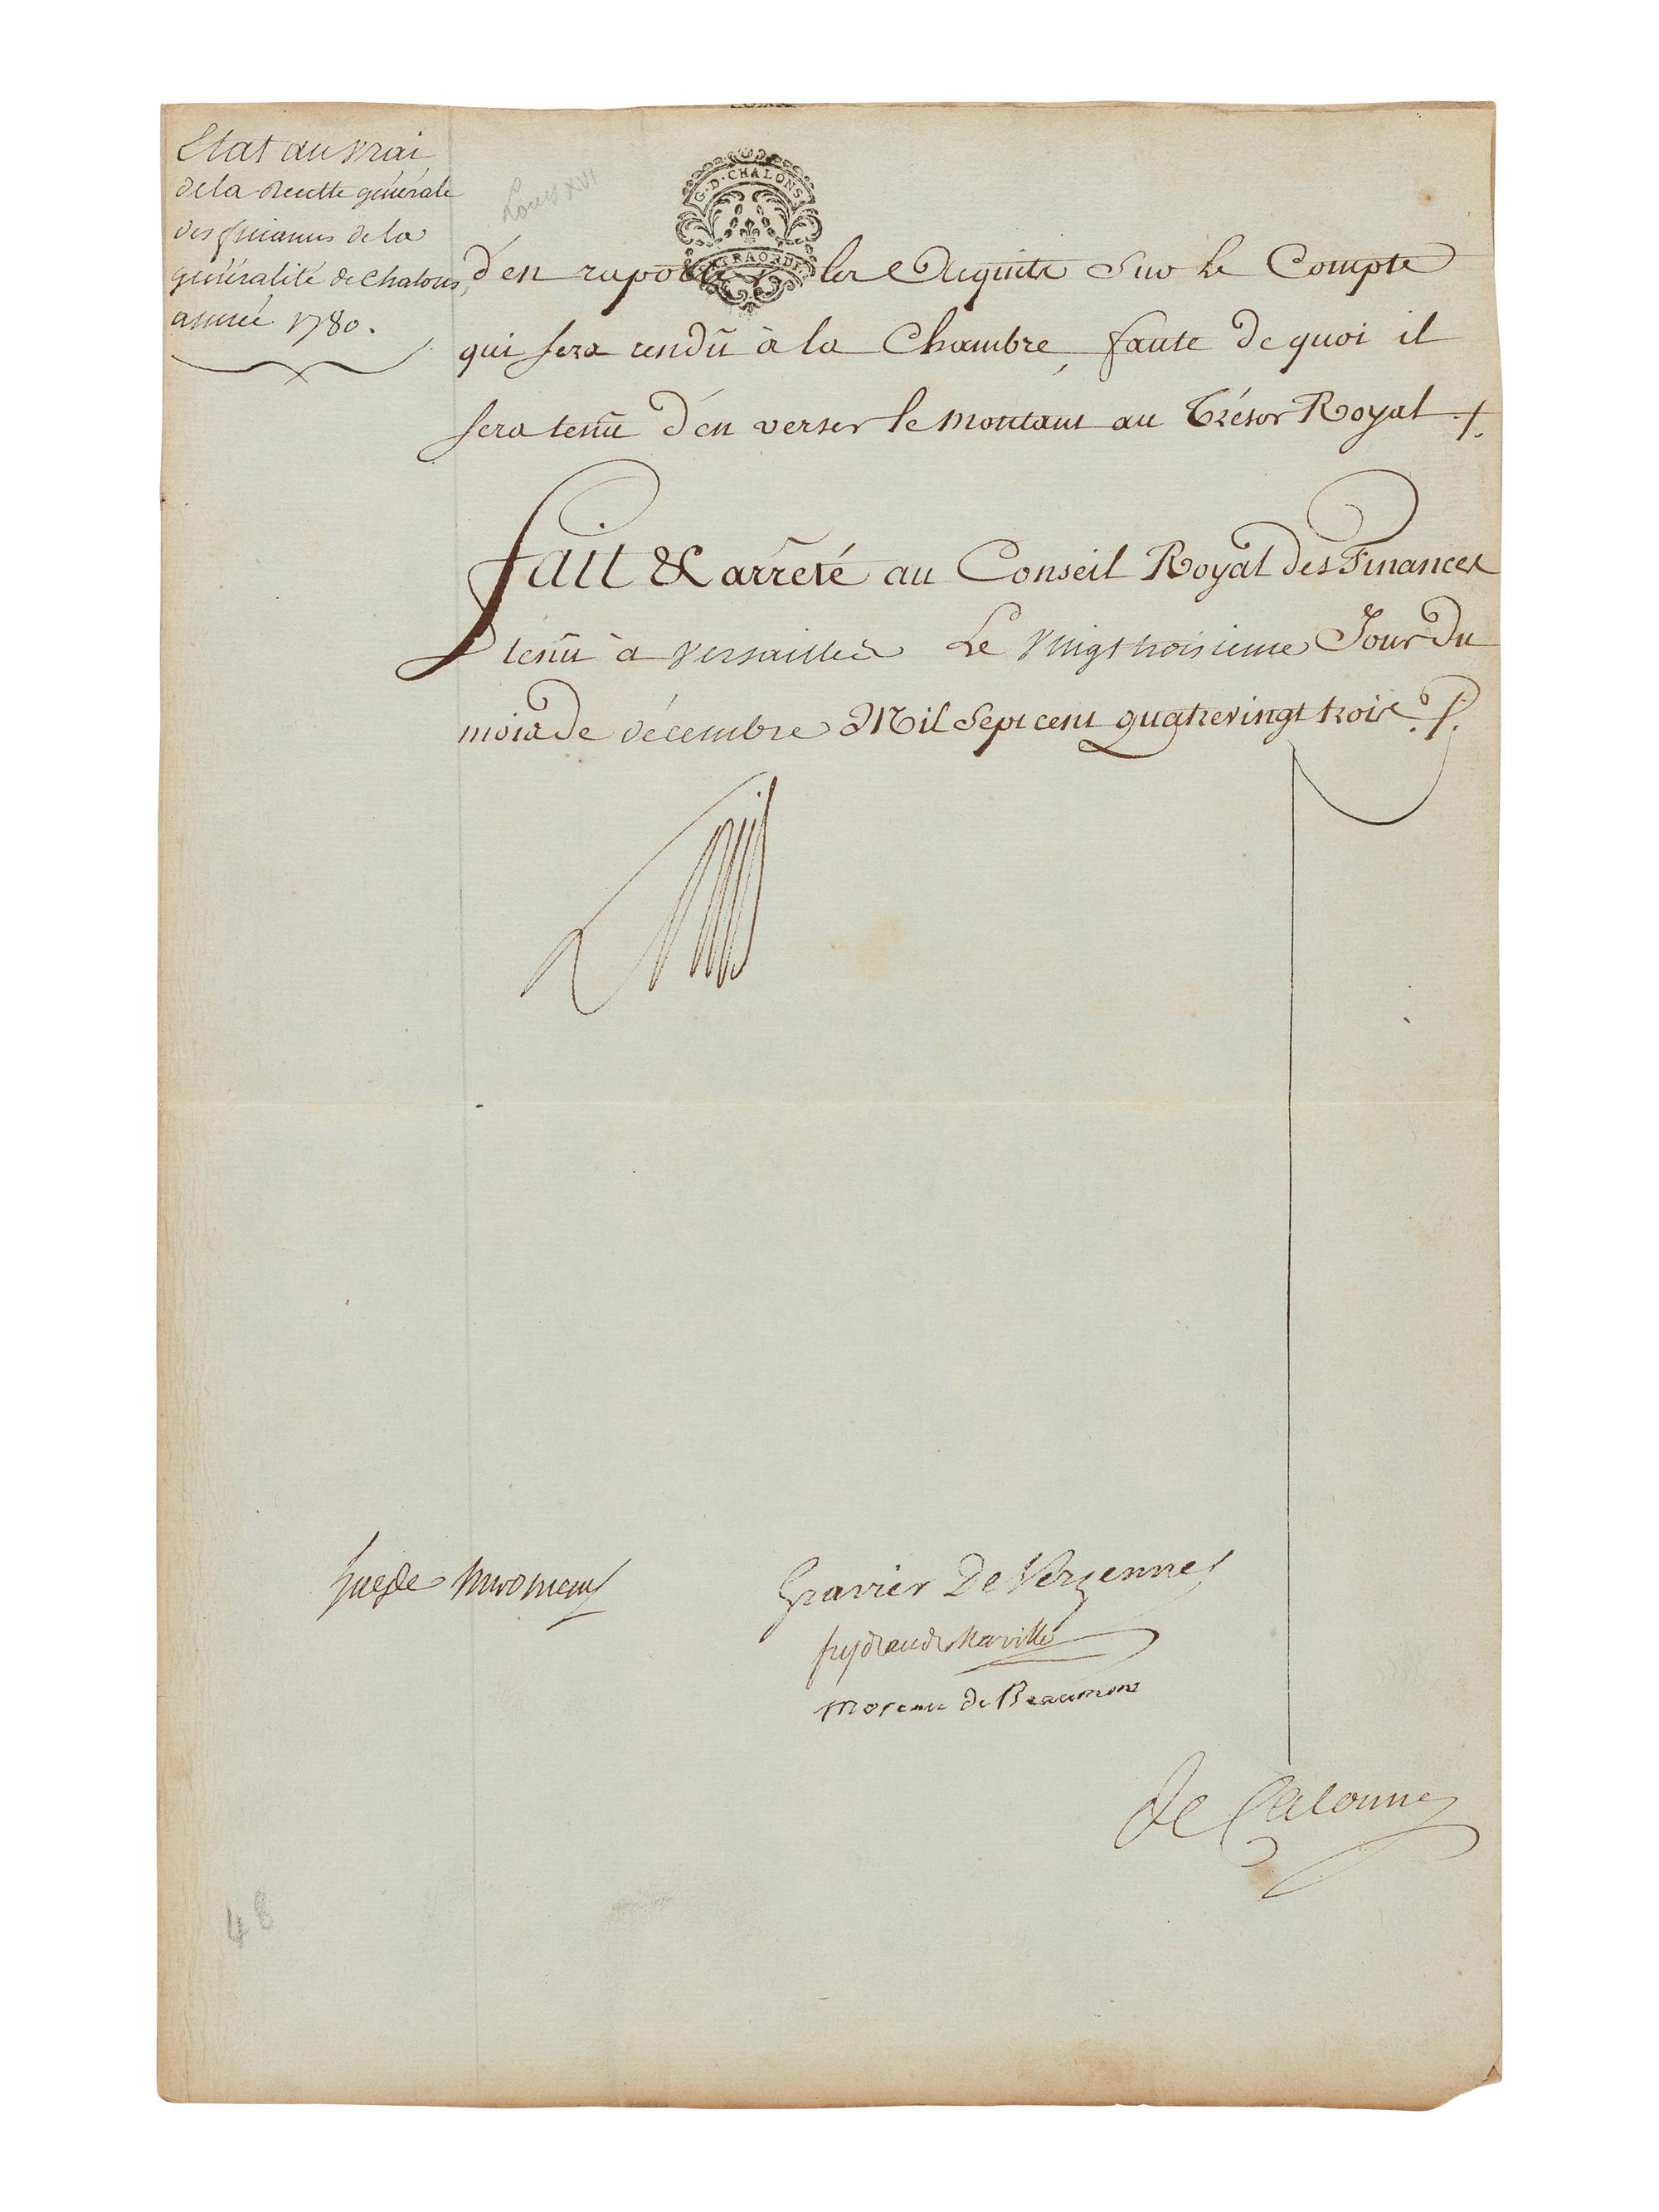 Etat au vrai
de la Recette générale
des finances de la
généralité de Chalons,
année 1780.
Louis XVI
G·D·CHALONS
EXTRAORDRE
d'en raporter les Acquits Sur le Compte
qui sera rendû à la Chambre, faute de quoi il
sera tenû d'en verser le montant au Trésor Royal ./.
fait & arrêté au Conseil Royal des Finances
tenû à Versailles Le Vingt troisieme Jour du
mois de décembre Mil Sept cent quatrevingt trois ./.
Louis
hue de Miromenil
Gravier De Vergennes
feydeau de Marville
Moreau de Beaumont
de Calonne
48